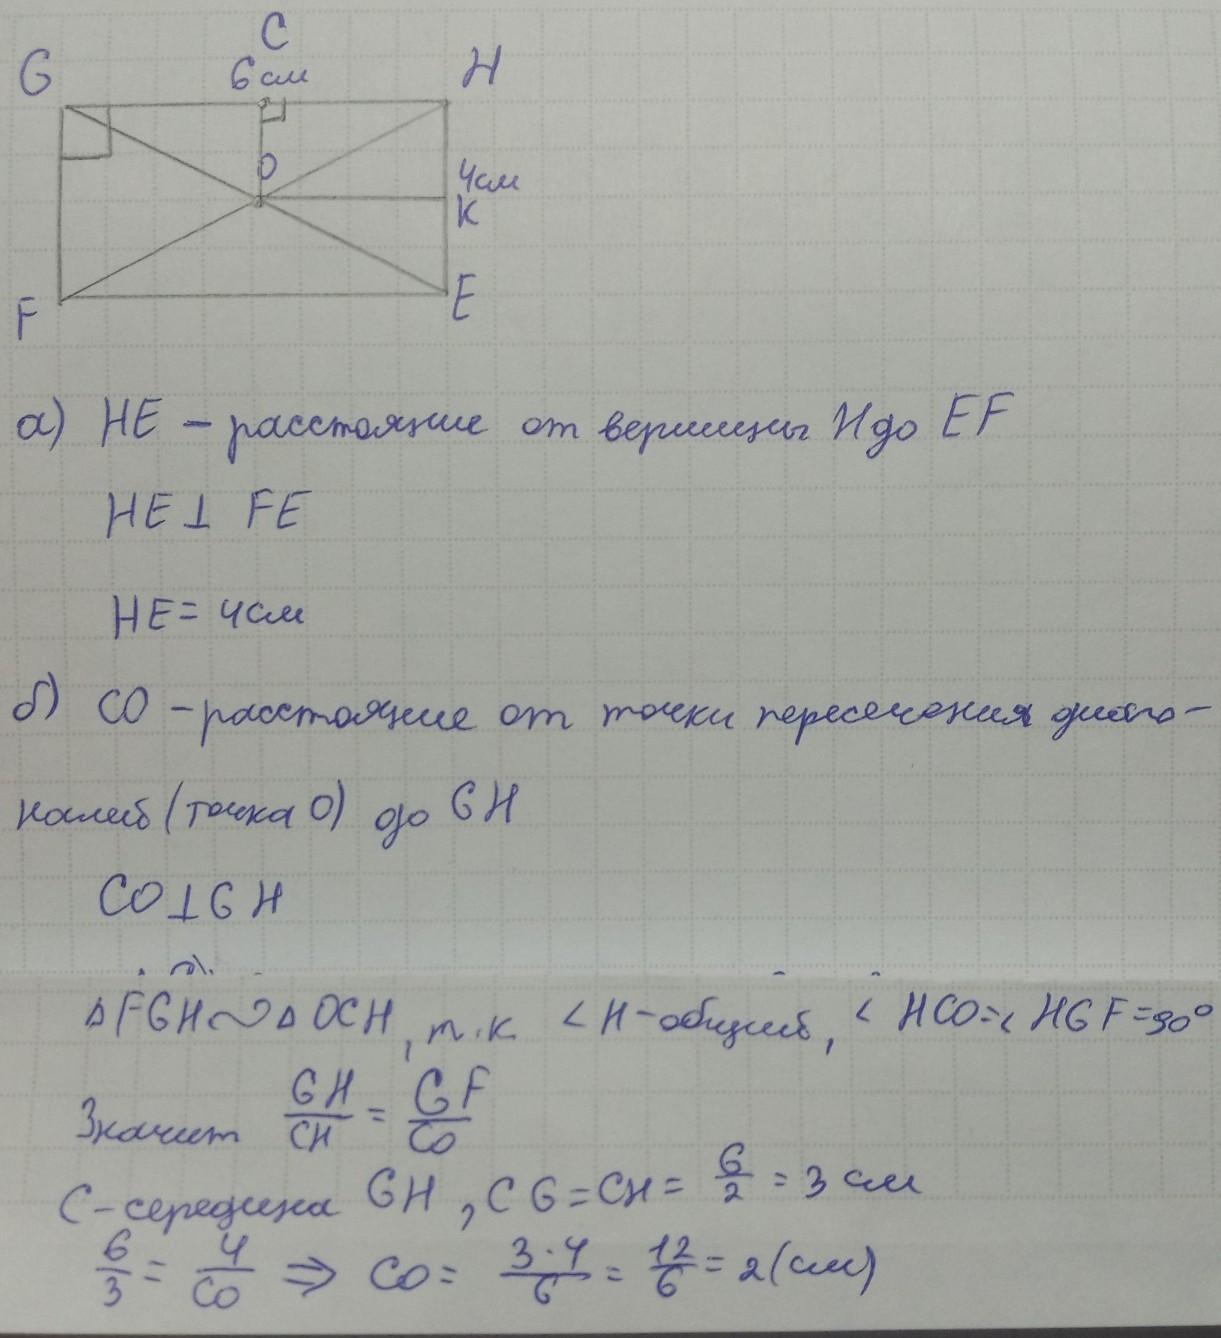 C
G 6 см H
O
4см
K
F E
а) HE – расстояние от вершины H до EF
HE ⊥ FE
HE = 4см
б) CO – расстояние от точки пересечения диаго-
налей (точка O) до GH
CO ⊥ GH
△FGH ∾ △OCH, т.к ∠H-общий, ∠HCO=∠HGF=90°
Значит GH/CH = GF/CO
C-середина GH, CG=CH= 6/2 = 3 см
6/3 = 4/CO ⇒ CO = 3·4/6 = 12/6 = 2 (см)